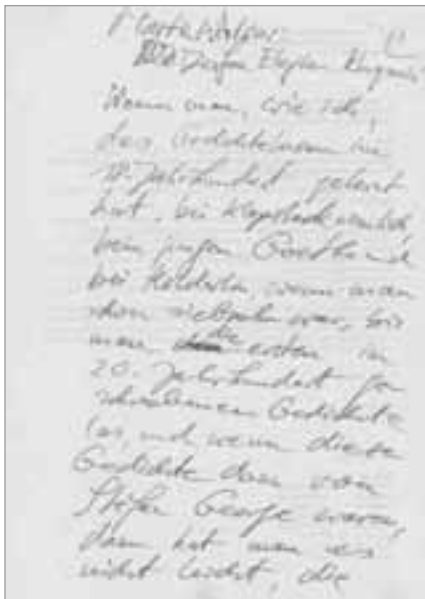 Wenn man, wie ich,
das Gedichtelesen im
18. Jahrhundert gelernt
hat, bei Klopstock
beim jungen Goethe und
bei Hölderlin, wenn man
schon siebzehn war, bis
man die ersten im
20. Jahrhundert ge
schriebenen Gedichte
las, und wenn diese
Gedichte dann von
Stefan George waren,
dann hat man es
nicht leicht, die